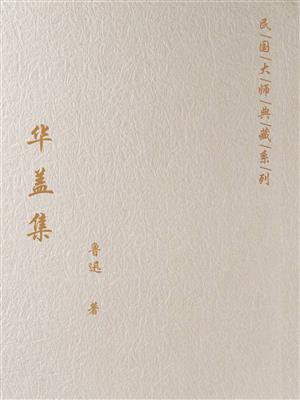 民国大师典藏系列
华盖集
鲁迅 著